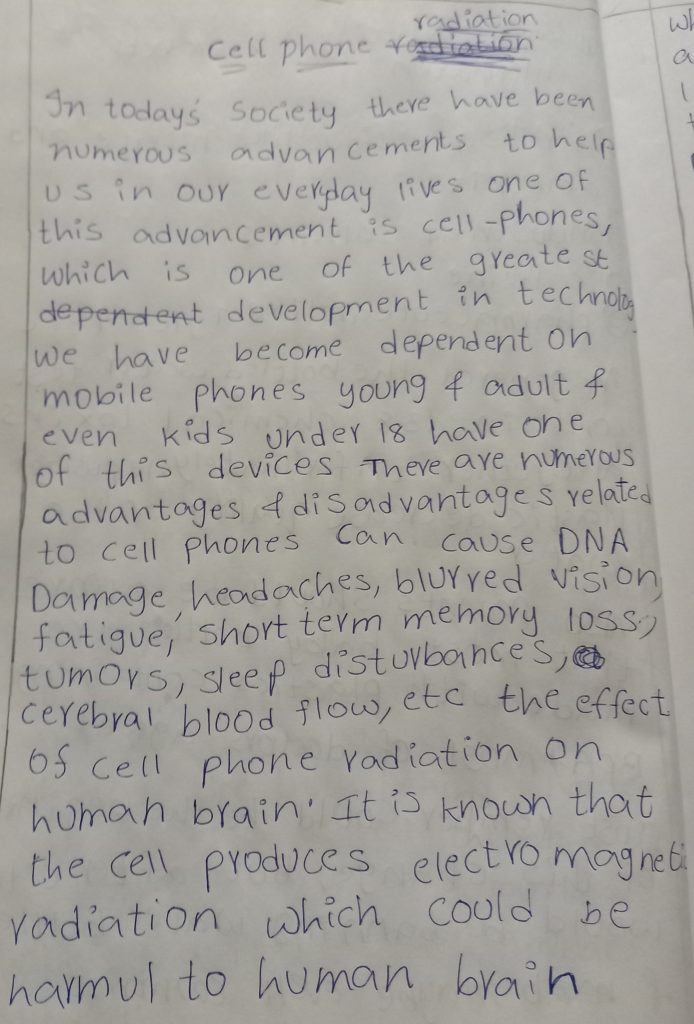 radiation
Cell phone radiation
In today's Society there have been
numerous advancements to help
us in our everyday lives one of
this advancement is cell-phones,
which is one of the greatest
dependent development in technolog
we have become dependent on
mobile phones young & adult &
even kids under 18 have one
of this devices There are numerous
advantages & disadvantages related
to cell phones Can cause DNA
Damage, headaches, blurred vision,
fatigue, short term memory loss,
tumors, sleep disturbances,
cerebral blood flow, etc the effect
of cell phone radiation on
human brain. It is known that
the cell produces electromagneti
radiation which could be
harmul to human brain